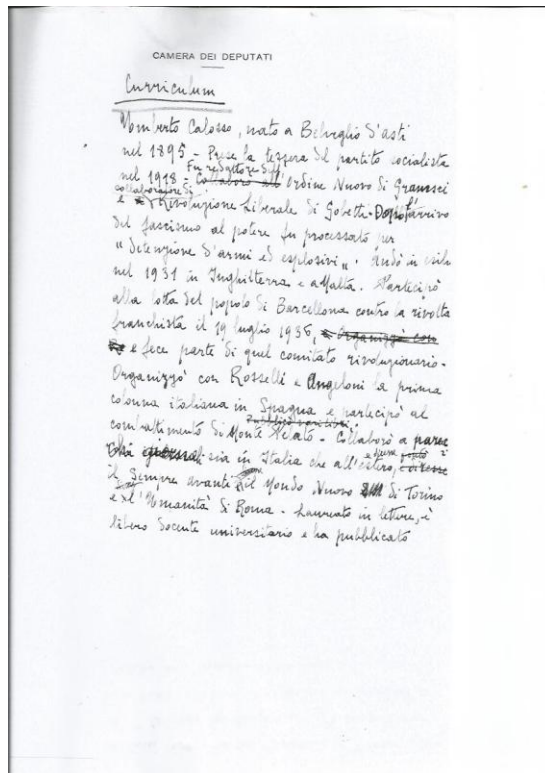 CAMERA DEI DEPUTATI
Curriculum
Umberto Calosso, nato a Belveglio d'Asti
nel 1895 - Prese la tessera del partito socialista
nel 1918 - Fu redattore dell' Collaborò all' Ordine Nuovo di Gramsci
e collaboratore di Rivoluzione Liberale di Gobetti. Dopo l'arrivo
del fascismo al potere fu processato per
"detenzione d'armi ed esplosivi". Andò in esilio
nel 1931 in Inghilterra e a Malta. Partecipò
alla lotta del popolo di Barcellona contro la rivolta
franchista il 19 luglio 1936, Organizzò con
e fece parte di quel comitato rivoluzionario -
Organizzò con Rosselli e Angeloni la prima
colonna italiana in Spagna e partecipò al
combattimento di Monte Pelato - Pubblicò vari libri. Collaborò a parec
chi giornali sia in Italia che all'estero, e diresse
il Sempre avanti e il Mondo Nuovo di Torino
e l'Umanità di Roma - Laureato in lettere, è
libero docente universitario e ha pubblicato